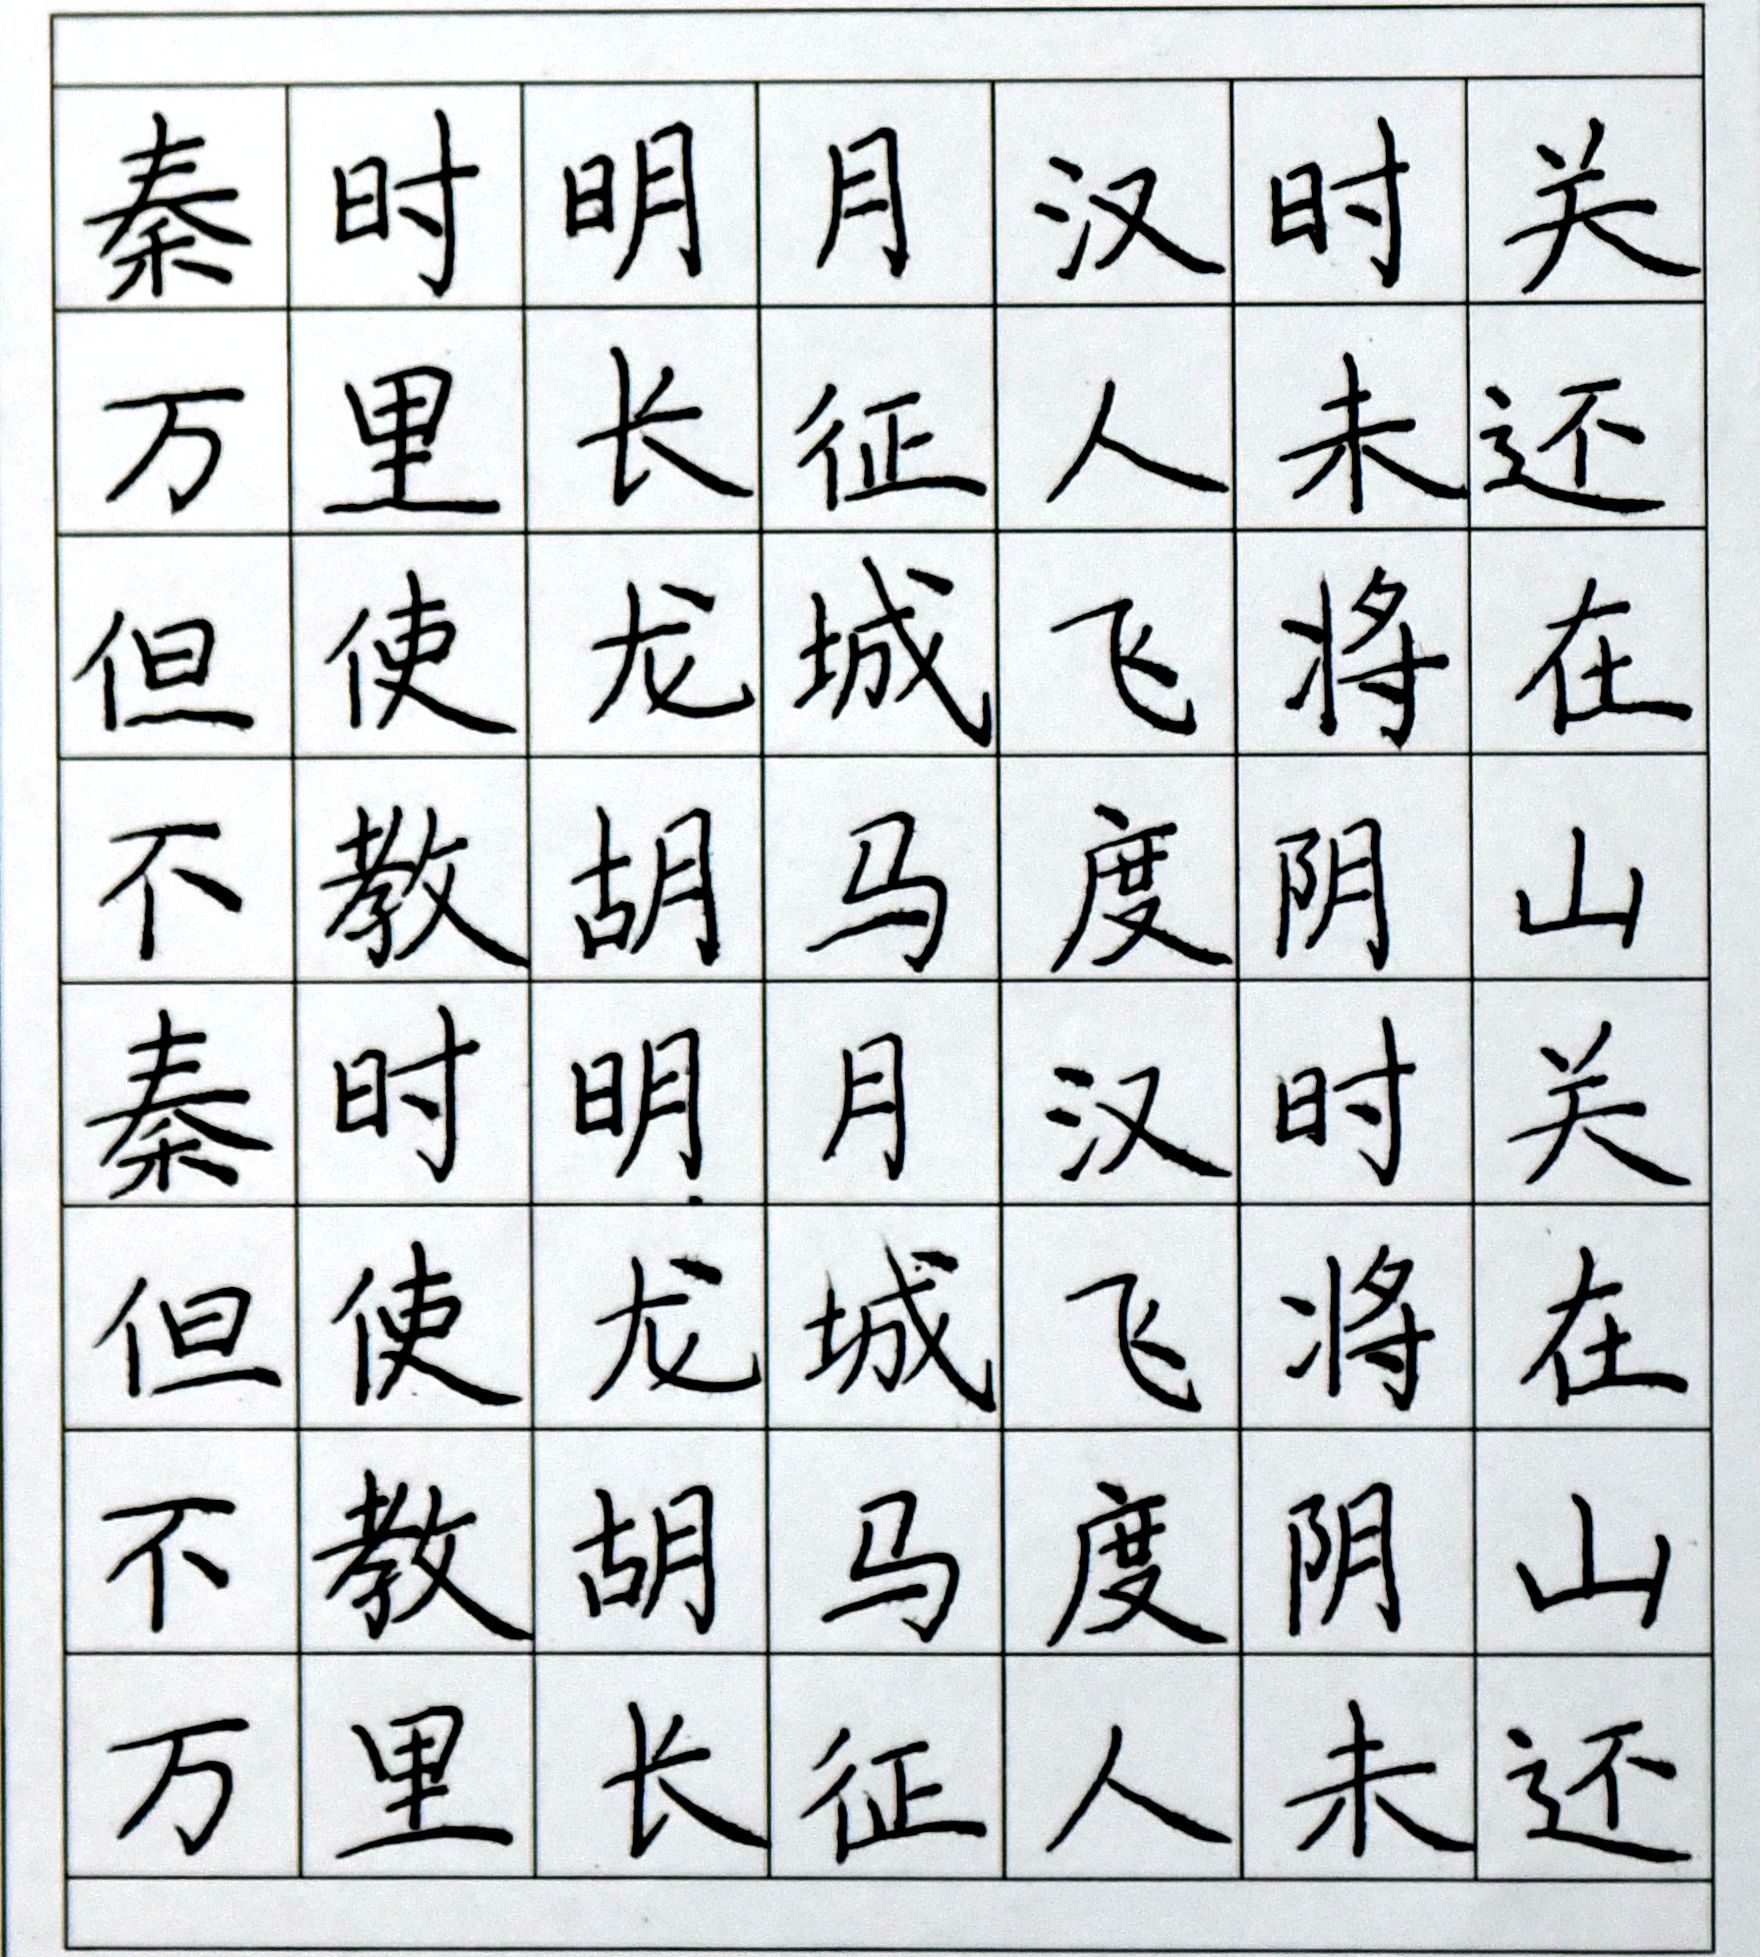 秦时明月汉时关
万里长征人未还
但使龙城飞将在
不教胡马度阴山
秦时明月汉时关
但使龙城飞将在
不教胡马度阴山
万里长征人未还